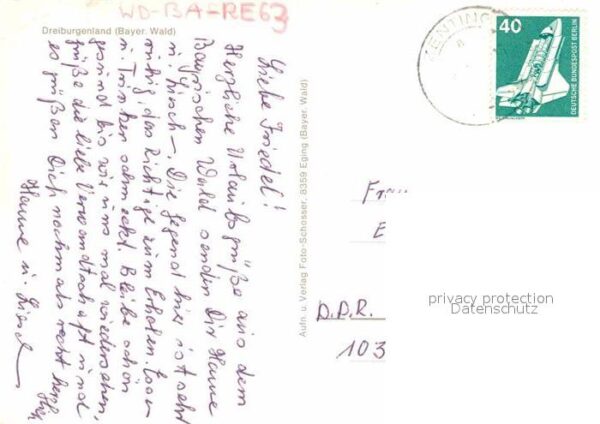 WD-BA-RE63
Dreiburgenland (Bayer. Wald)
Liebe Friedel!
Herzliche Urlaubsgrüße aus dem
Bayrischen Wald senden Dir Hanne
u. Lisch–. Die Gegend hier ist sehr
ruhig, das Richtige zum Erholen. Essen
u. Trinken schmeckt. Bleibe schön
gesund bis wir uns mal wiedersehen,
grüße die liebe Verwandtschaft und
es grüßen Dich nochmals recht herzl.
Hanne u.
Aufn. u. Verlag Foto-Schosser, 8359 Eging (Bayer. Wald)
40
DEUTSCHE BUNDESPOST BERLIN
D.D.R.
103
privacy protection
Datenschutz